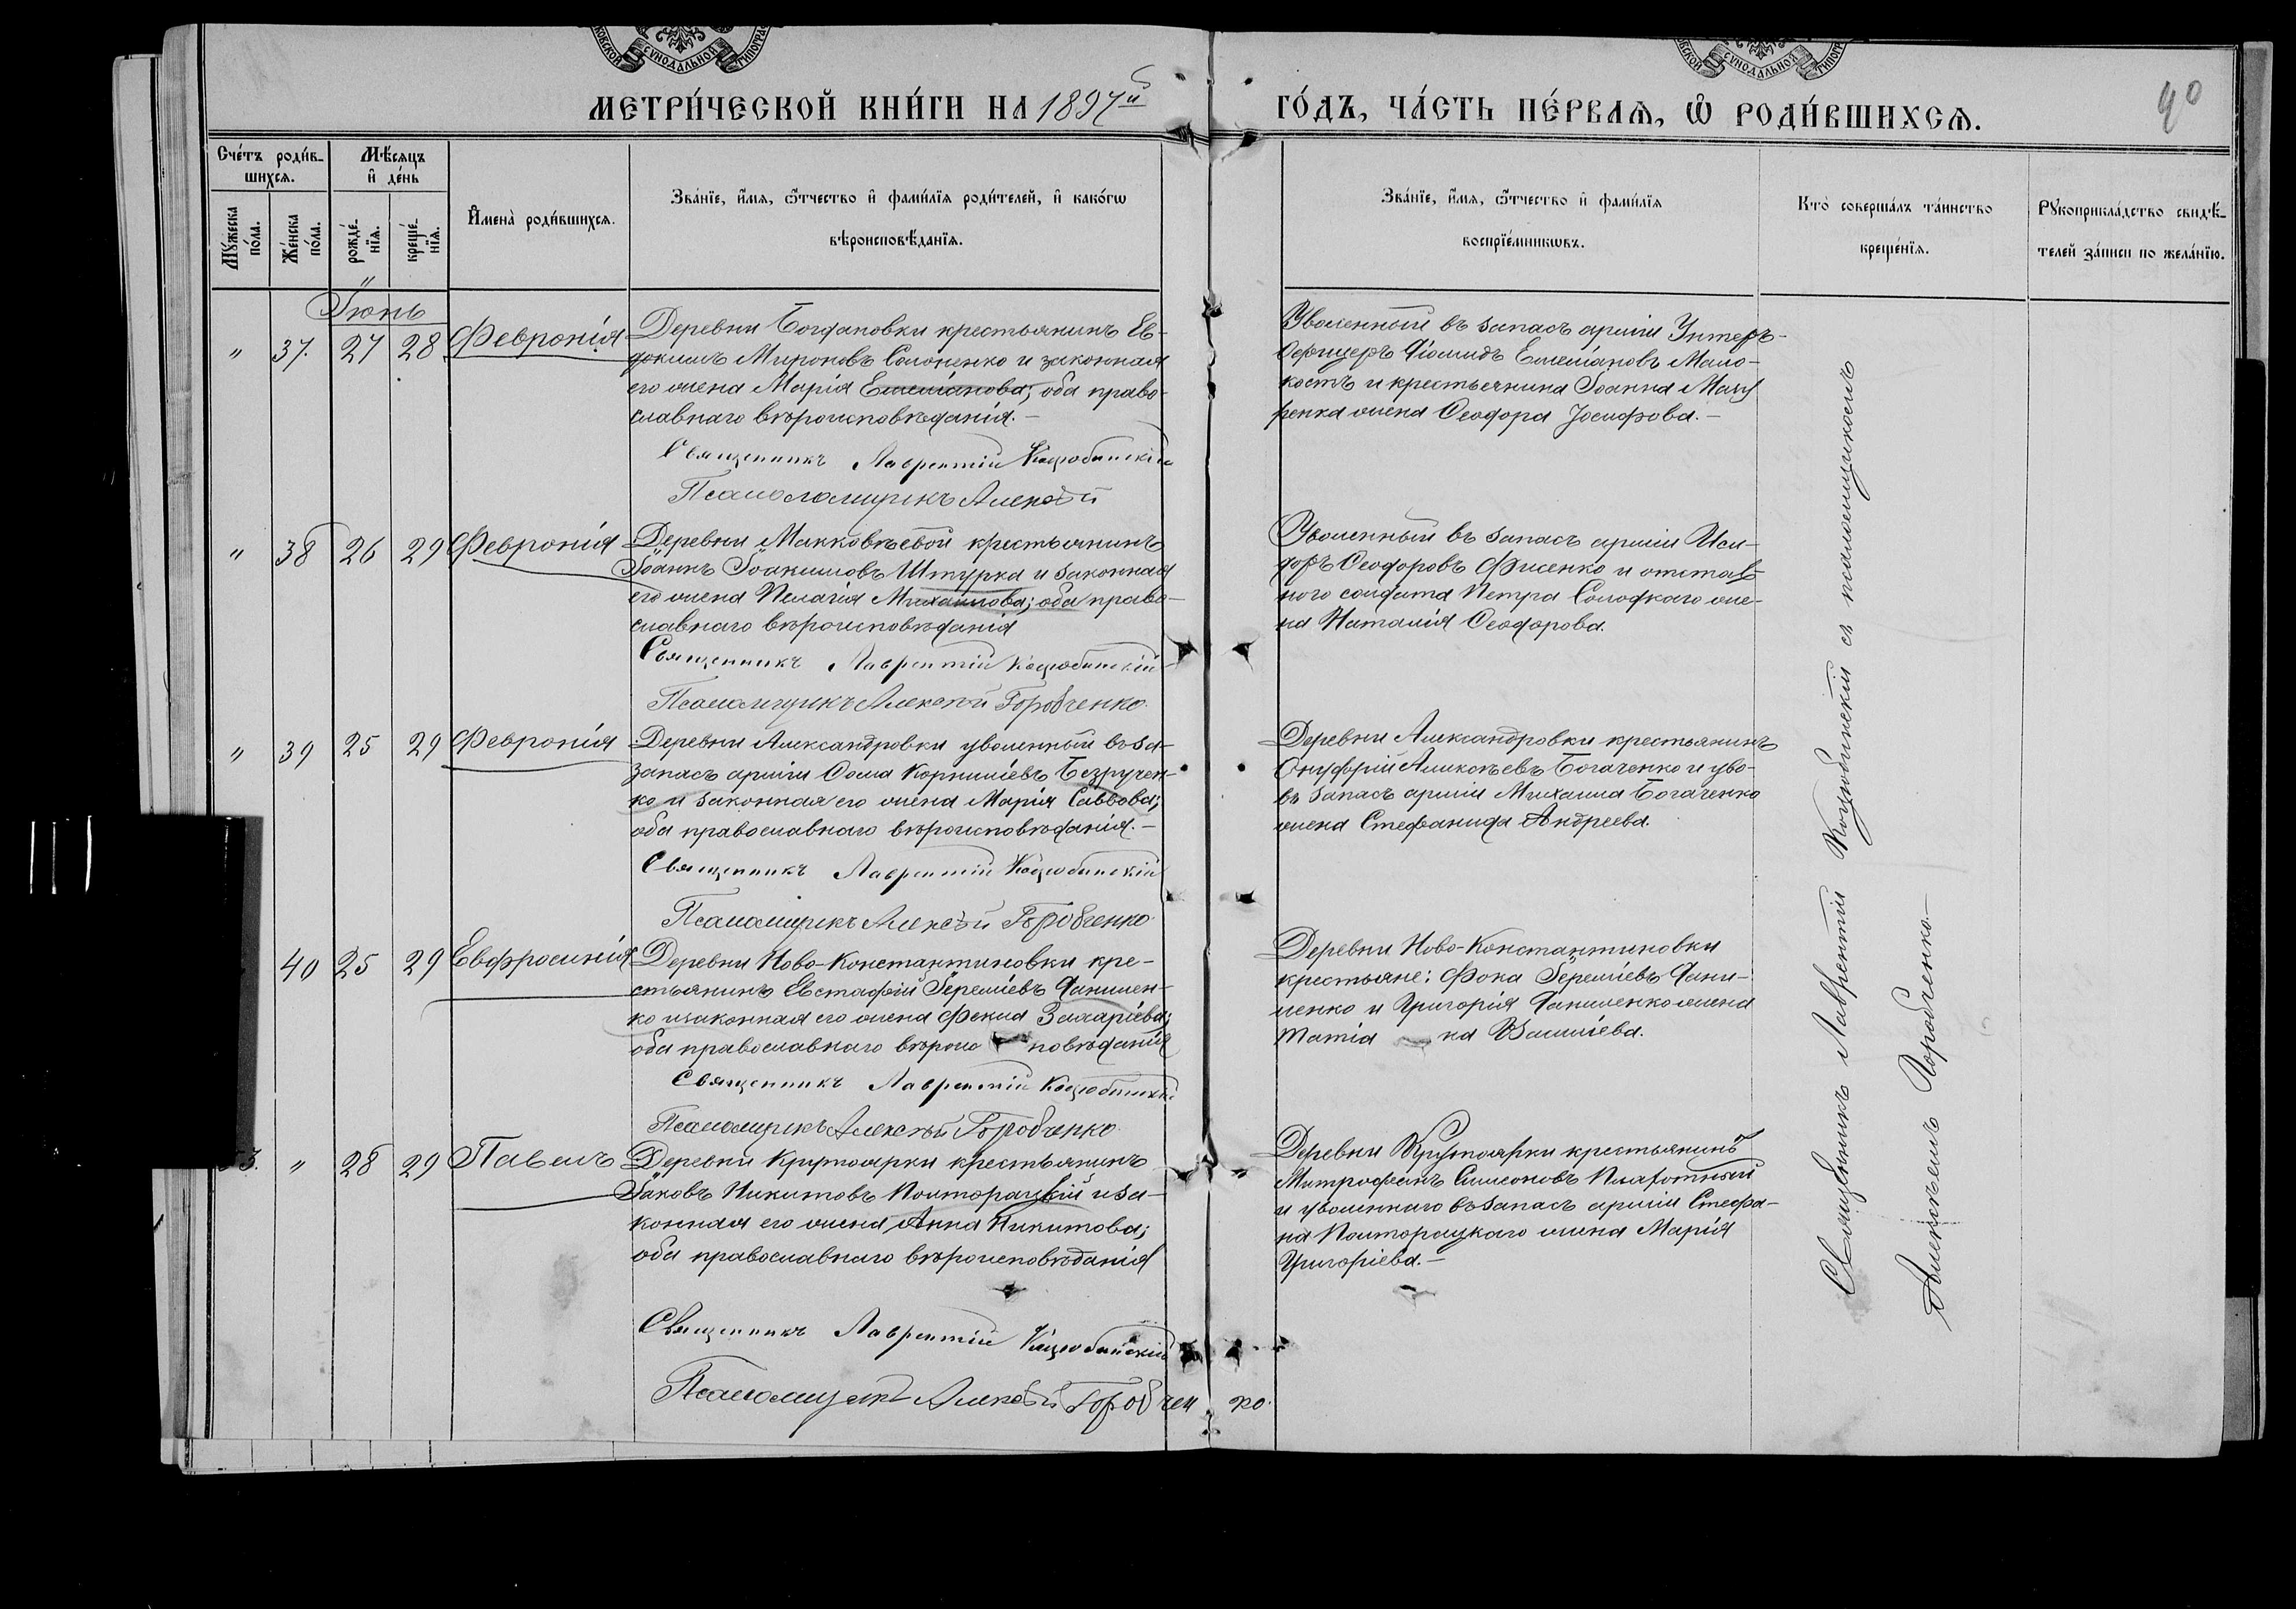 МЕТРИ́ЧЕСКОЙ КНИ́ГИ НА 1897й ГО́ДЪ, ЧА́СТЬ ПЕ́РВАѦ, Ѽ РОДИ́ВШИХСѦ.
40
Сче́тъ роди́в-
шихсѧ.
Мѣ́сѧцъ
и҆ де́нь
Мꙋ́жеска
по́ла.
Же́нска
по́ла.
рожде́-
нїѧ.
креще́-
нїѧ.
И҆мена̀ роди́вшихсѧ.
Зва́нїе, и҆́мѧ, ѻ҆́тчество и҆ фами́лїѧ роди́телей, и҆ како́гѡ
вѣроисповѣ́данїѧ.
Зва́нїе, и҆́мѧ, ѻ҆́тчество и҆ фами́лїѧ
воспрїе́мникѡвъ.
Кто̀ соверша́лъ та́инство
креще́нїѧ.
Рꙋкоприкла́дство свидѣ́-
телей за́писи по жела́нїю.
Іюнь
" 37. 27 28 Февронія
Деревни Богдановки крестьянинъ Ев-
докимъ Мироновъ Солоненко и законная
его жена Марія Емеліанова; оба право-
славнаго вѣроисповѣданія.—
Священникъ Лаврентій Коцюбинскій
Псаломщикъ Алексѣй
Уволенный въ запасъ арміи Унтеръ-
Офицеръ Діомидъ Емеліановъ Мало-
костъ и крестьянина Іоанна Мазу
ренка жена Ѳеодора Іосифова.—
" 38 26 29 Февронія
Деревни Макковѣевой крестьянинъ
Іоаннъ Іоакимовъ Штурка и законная
его жена Пелагія Михаилова; оба право-
славнаго вѣроисповѣданія
Священникъ Лаврентій Коцюбинскій
Псаломщикъ Алексѣй Горобченко.
Уволенный въ запасъ арміи Иси-
доръ Ѳеодоровъ Фисенко и отстав-
ного солдата Петра Солодкаго же-
на Наталія Ѳеодорова.
" 39 25 29 Февронія
Деревни Александровки уволенный въ за-
запасъ арміи Ѳома Корниліевъ Безручен-
ко и законная его жена Марія Саввова;
оба православнаго вѣроисповѣданія.—
Священникъ Лаврентій Коцюбинскій
Псаломщикъ Алексѣй Горобченко
Деревни Александровки крестьянинъ
Онуфрій Алексѣевъ Богаченко и уво-
въ запасъ арміи Михаила Богаченко
жена Стефанида Андреева.
40 25 29 Евфросинія
Деревни Ново-Константиновки кре-
стьянинъ Евстафій Іереміевъ Данилен-
ко и законная его жена Фекла Захаріева;
оба православнаго вѣроис повѣданія
Священникъ Лаврентій Коцюбинскій
Псаломщикъ Алексѣй Горобченко
Деревни Ново-Константиновки
крестьяне: Фока Іереміевъ Дани-
ленко и Григорія Даниленко жена
Татіа на Василіева.
3. " 28 29 Павелъ
Деревни Крутоярки крестьянинъ
Іаковъ Никитовъ Полторацкій и за-
конная его жена Анна Никитова;
оба православнаго вѣроисповѣданія
Священникъ Лаврентій Коцюбинскій
Псаломщикъ Алексѣй Горобчен ко.
Деревни Крутоярки крестьянинъ
Митрофанъ Симеоновъ Плахотный
и уволеннаго въ запасъ арміи Стефа-
на Полторацкаго жена Марія
Григоріева.—
Священникъ Лаврентій Коцюбинскій съ псаломщикомъ
Алексѣемъ Горобченко.—